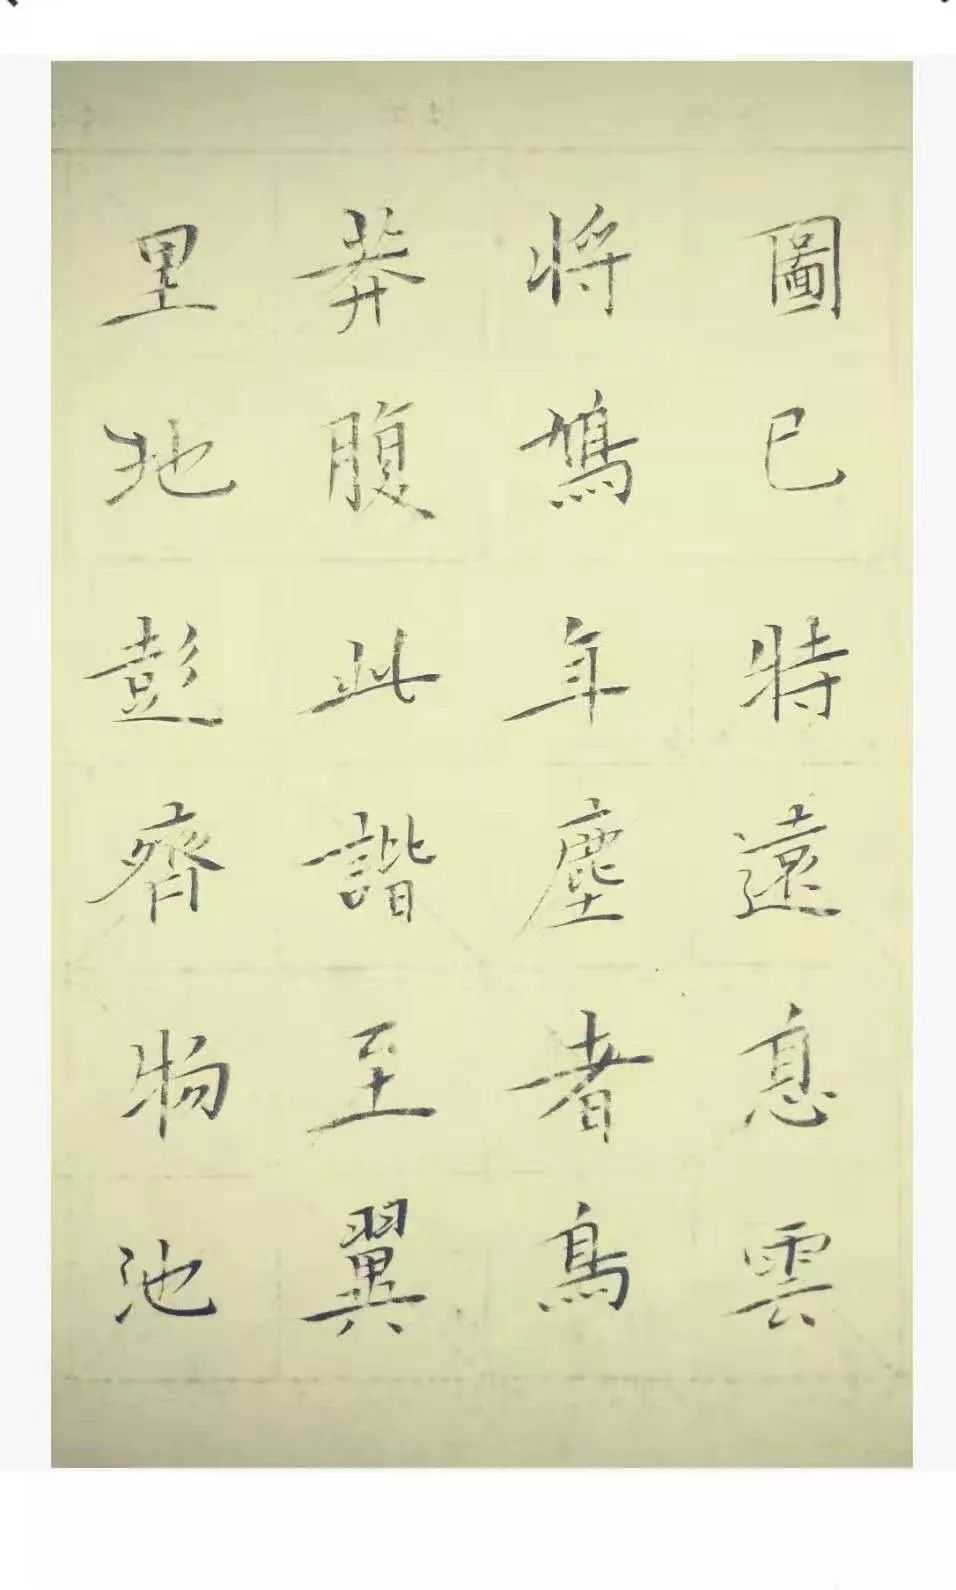 圖已特遠息雲
將鴆年塵者鳥
莽腹此諧至翼
里地彭齊物池